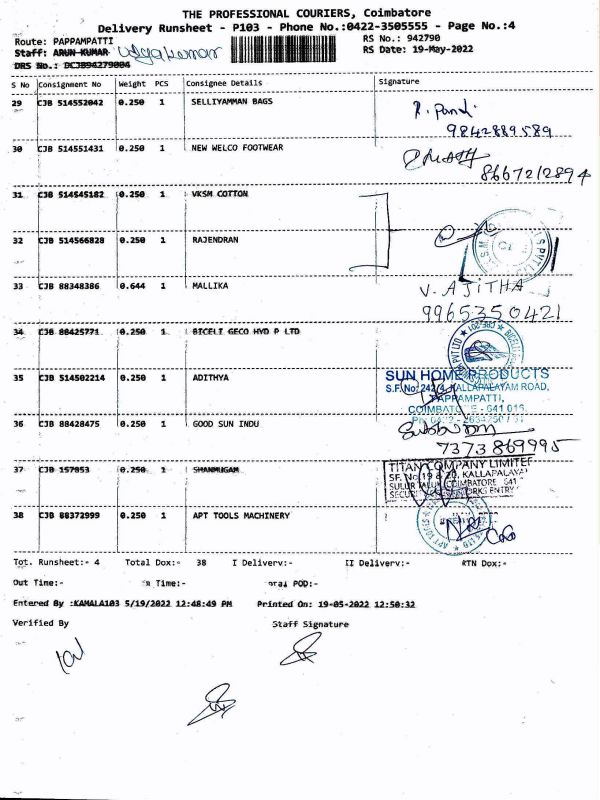 THE PROFESSIONAL COURIERS, Coimbatore
Delivery Runsheet - P103 - Phone No.:0422-3505555 - Page No.:4
Route: PAPPAMPATTI
RS No.: 942790
Staff: ARUN KUMAR
RS Date: 19-May-2022
DRS No.: DCJB94279004
S No Consignment No Weight PCS Consignee Details Signature
29 CJB 514552042 0.250 1 SELLIYAMMAN BAGS
9842889589
30 CJB 514551431 0.250 1 NEW WELCO FOOTWEAR
8667212894
31 CJB 514545182 0.250 1 VKSM COTTON
32 CJB 514566828 0.250 1 RAJENDRAN
33 CJB 88348386 0.644 1 MALLIKA V. AJITHA
9965350421
34 CJB 88425771 0.250 1 BICELI GECO HYD P LTD
35 CJB 514502214 0.250 1 ADITHYA
SUN HOME PRODUCTS
S.F.No: 242/4, KALLAPALAYAM ROAD,
PAPPAMPATTI,
COIMBATORE - 641 016.
36 CJB 88428475 0.250 1 GOOD SUN INDU
7373869995
37 CJB 157853 0.250 1 SHANMUGAM
TITAN COMPANY LIMITED
38 CJB 88372999 0.250 1 APT TOOLS MACHINERY
Tot. Runsheet:- 4 Total Dox:- 38 I Delivery:- II Delivery:- RTN Dox:-
Out Time:- Time:- POD:-
Entered By :KAMALA103 5/19/2022 12:48:49 PM Printed On: 19-05-2022 12:50:32
Verified By Staff Signature